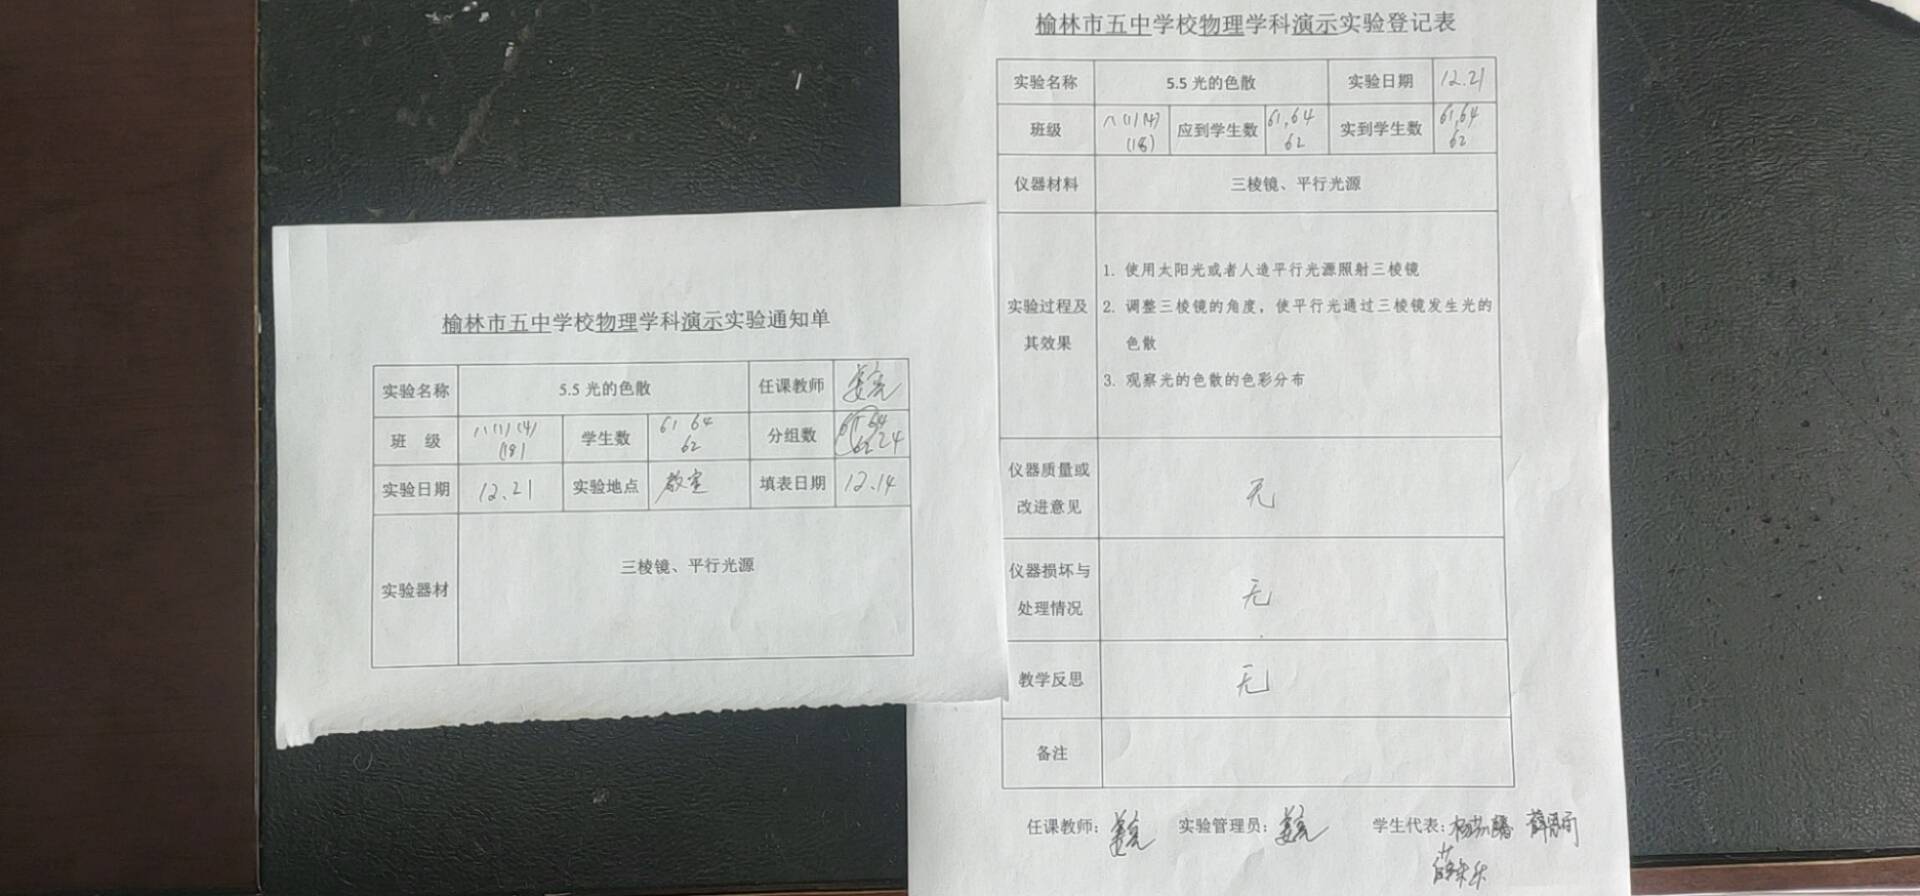 榆林市五中学校物理学科演示实验通知单
实验名称 5.5 光的色散 任课教师
班 级 八(1)(4) 学生数 61 64 分组数
(18) 62 24
实验日期 12.21 实验地点 教室 填表日期 12.14
实验器材 三棱镜、平行光源
榆林市五中学校物理学科演示实验登记表
实验名称 5.5 光的色散 实验日期 12.21
班级 八(1)(4) 应到学生数 61,64 实到学生数 61,64
(18) 62 62
仪器材料 三棱镜、平行光源
实验过程及
其效果
1. 使用太阳光或者人造平行光源照射三棱镜
2. 调整三棱镜的角度，使平行光通过三棱镜发生光的
色散
3. 观察光的色散的色彩分布
仪器质量或
改进意见
无
仪器损坏与
处理情况
无
教学反思 无
备注
任课教师: 实验管理员: 学生代表: